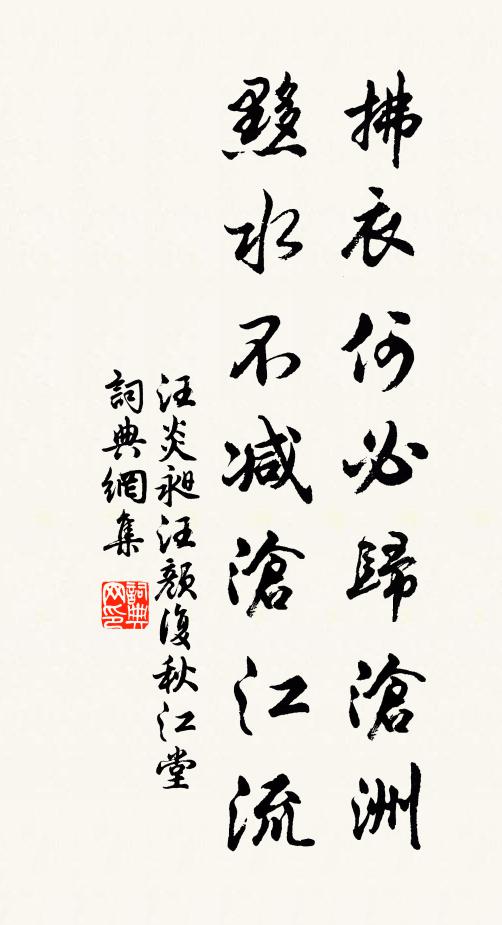 拂衣何必歸滄洲
黟水不減滄江流
汪炎昶汪顏復秋江堂
詞典網集
詞典网印